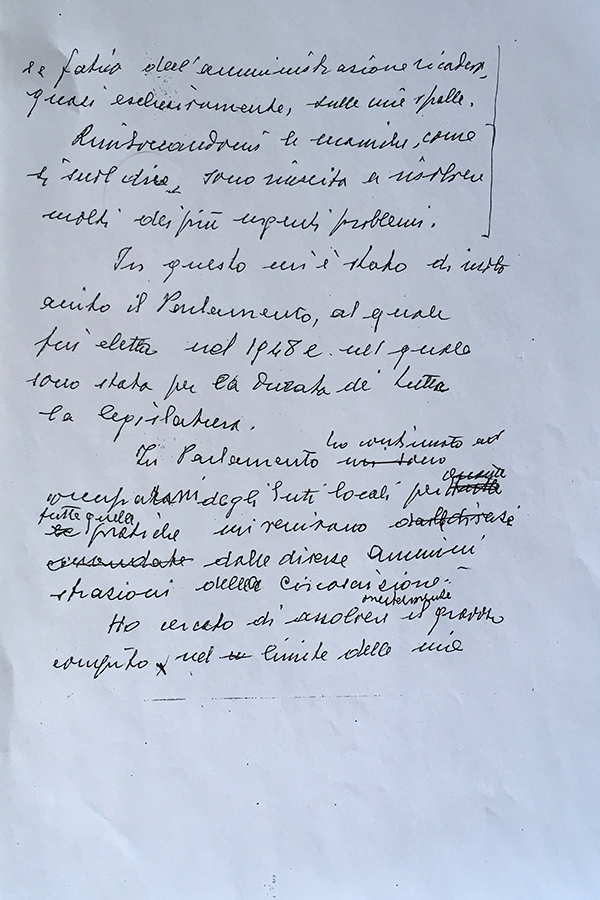 fatica dell'amministrazione ricadeva,
quasi esclusivamente, sulle mie spalle.
Rimboccandomi le maniche, come
si suol dire, sono riuscita a risolvere
molti dei più urgenti problemi.
In questo mi è stato di molto
aiuto il Parlamento, al quale
fui eletta nel 1948 e nel quale
sono stata per la durata di tutta
la legislatura.
ho continuato ad
In Parlamento mi sono
occuparmi degli Enti locali per
tutte quelle
le pratiche mi venivano dalle diverse
dalle diverse Ammini
strazioni della Circoscrizione.
nel
Ho cercato di assolvere il gravoso
compito, nel limite delle mie